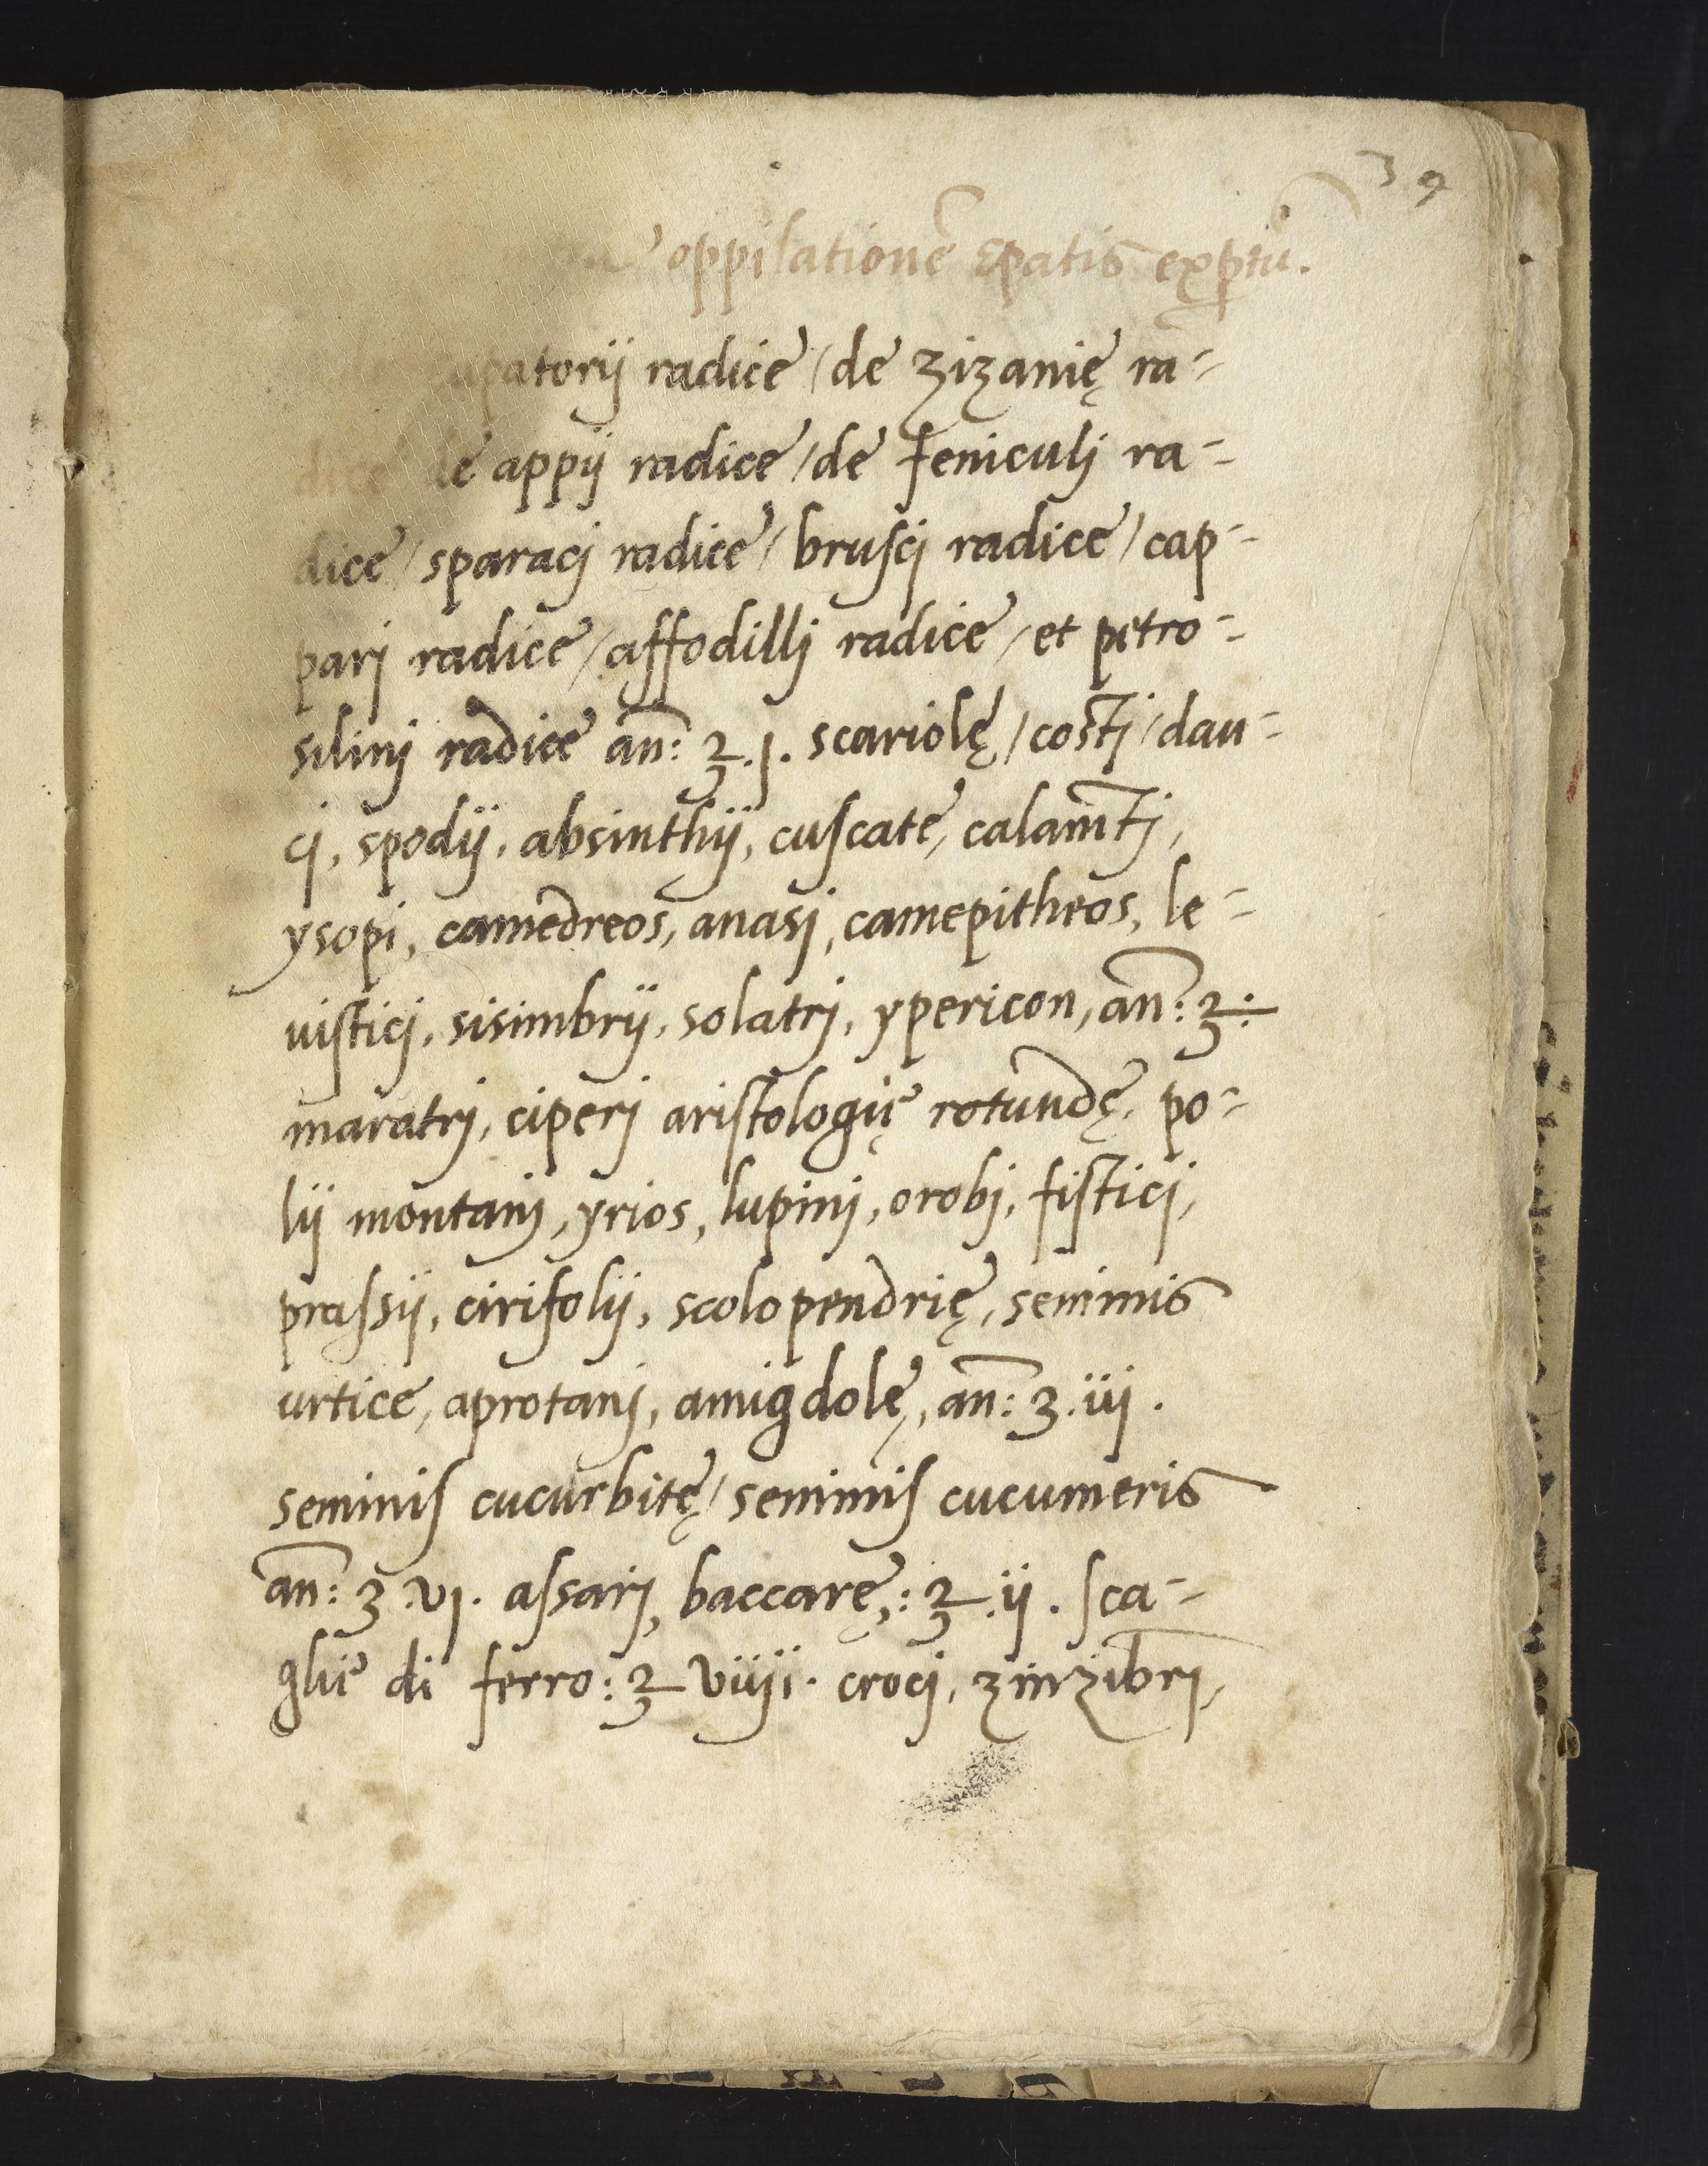 39
oppilationē Epatis exp̱tū.
eupatorij radice / de zizanię ra-
dice de appij radice / de feniculj ra-
dice / sparacj radice / bruscj radice / cap-
parj radice / affodillj radice / et petro-
silinj radice añ: ℥.j. scariolę / costj / dau-
cj, spodij, absinthij, cuscate, calam̃tj,
ysopi, camedreos, anasj, camepitheos, le-
uisticj, sisimbrij, solatrj, ypericon, añ: ℥:
maratrj, ciperj aristologię rotundę, po-
lij montanj, yrios, lupinj, orobj, fisticj,
prassij, cirifolij, scolopendrię, seminis
urtice, aprotanj, amigdolę, añ: ʒ.iij.
seminis cucurbitę / seminis cucumeris
añ: ʒ.vj. assarj, baccarę,: ℥.ij. sca-
glie di ferro: ℥ viiij. crocj, zinzibrj,